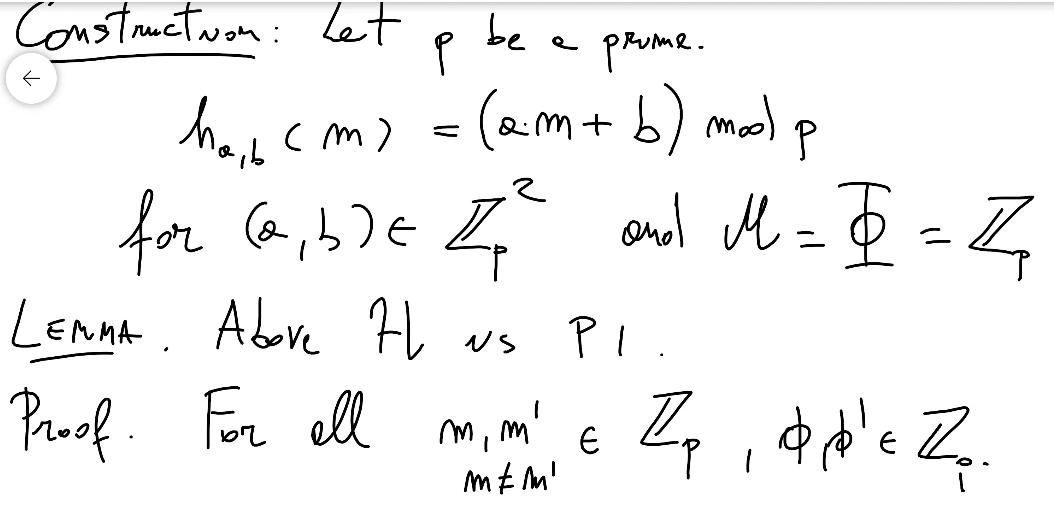 Construction: Let p be a prime.
h_{a,b}(m) = (a·m + b) mod p
for (a,b) ∈ ℤ_p² and M = Φ = ℤ_p
LEMMA. Above H is PI.
Proof. For all m, m' ∈ ℤ_p, ϕ, ϕ' ∈ ℤ_p.
m ≠ m'